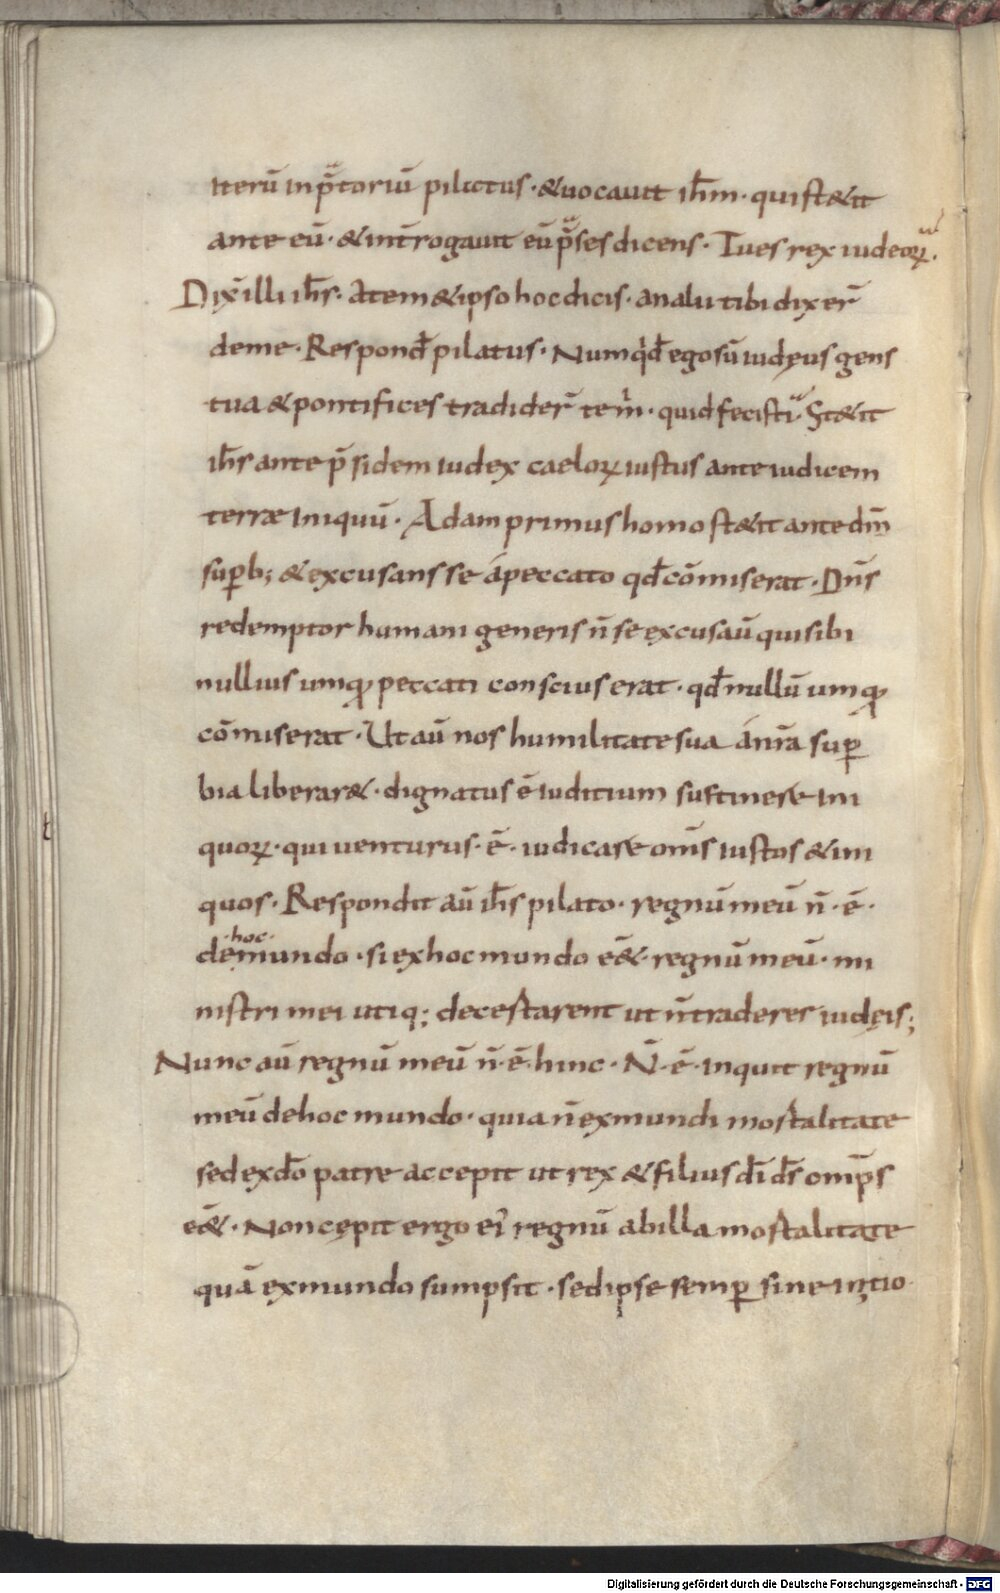 iterū inp̄toriū pilatus · &uocauit ih̄m · quist&it
ante eū · &int̄rogauit eū p̄ses dicens · Tues rex iudeoꝝ ·
Dix̄ illi ih̄s · Atem&ipso hoc dicis · an alii tibi dixer̄
deme · Respond̄ pilatus · Numqd̄ ego sū iudęus gens
tua &pontifices tradider̄ tem̄ · quid fecisti · St&it
ih̄s ante p̄sidem iudex caeloꝝ iustus ante iudicem
terræ iniquū · Adam primus homo st&it ante dm̄
suꝑb; &excusans se ápeccato qd̄ cōmiserat · Dn̄s
redemptor humani generis n̄ se excusau̅ qui sibi
nullius umqꝫ peccati conscius erat · qd̄ nullū umqꝫ
cōmiserat · Ut aū nos humilitate sua án̄ra suꝑ
bia liberar& · dignatus ē iuditium sustinere ini
quoꝝ · qui uenturus · ē · iudicare om̄s iustos &ini
quos · Respondit aū ih̄s pilato · regnū meū n̄ · ē ·
de ·hoc· mundo · si ex hoc mundo ēē& regnū meū · mi
nistri mei utiq; decertarent ut n̄ traderer iudęis;
Nunc aū regnū meū n̄ · ē · hinc · N̄ · ē · inquit regnū
meū dehoc mundo · quia n̄ ex mundi mortalitate
sed exdō patre accepit ut rex &filius dī ds̄ omp̄s
ēē& · Non cępit ergo ei regnū abilla mortalitate
quā exmundo sumpsit · sed ipse semꝑ sine initio
Digitalisierung gefördert durch die Deutsche Forschungsgemeinschaft - DFG